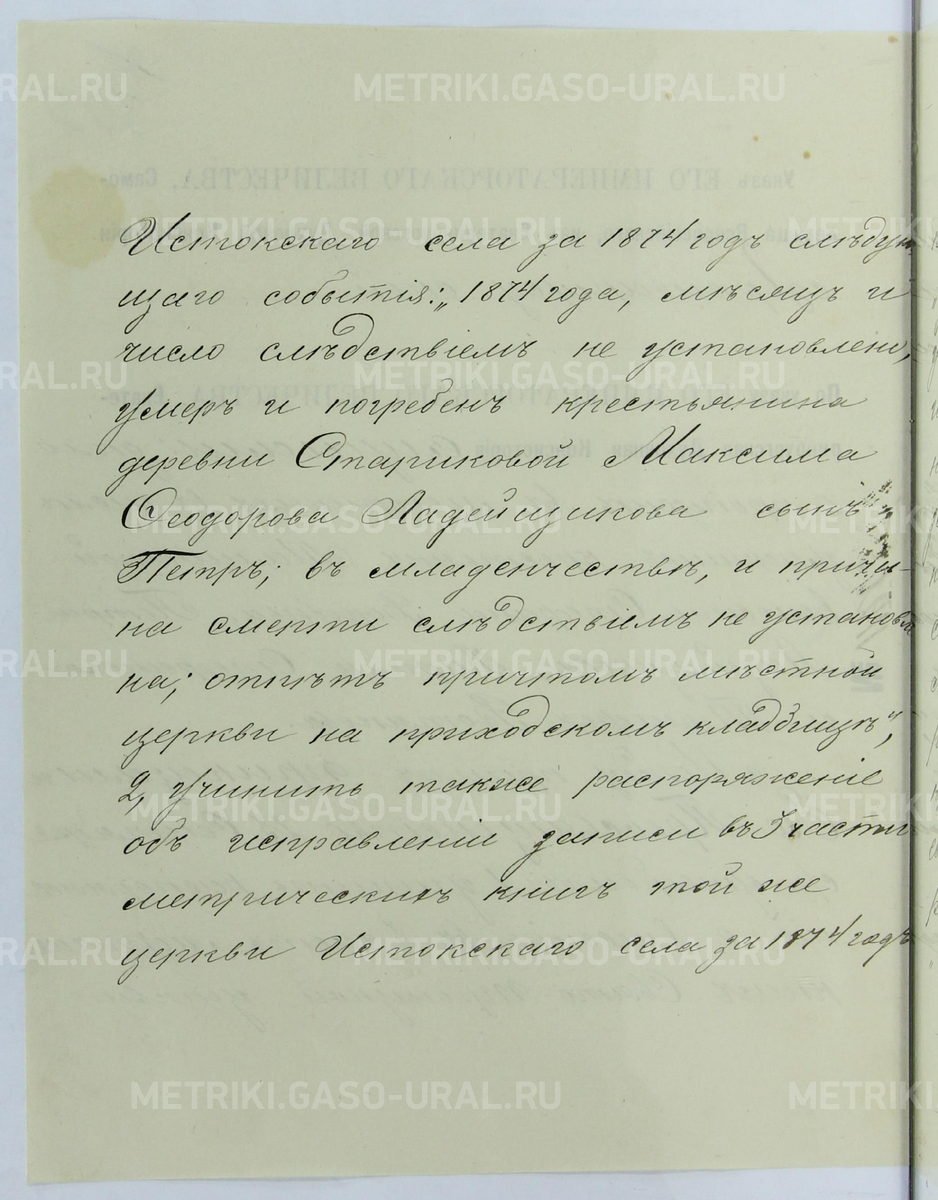 Истокскаго села за 1874 годъ слѣдую
щаго событія: „1874 года, мѣсяцъ и
число слѣдствіемъ не установлено,
умеръ и погребенъ крестьянина
деревни Стариковой Максима
Ѳеодорова Ладейщикова сынъ
Петръ; въ младенчествѣ, и причи-
на смерти слѣдствіемъ не установле
на; отпѣтъ причтомъ мѣстной
церкви на приходскомъ кладбищѣ“,
2, Учинить также распоряженіе
объ исправленіи записи въ 3 части
метрическихъ книгъ той же
церкви Истокскаго села за 1874 годъ
METRIKI.GASO-URAL.RU